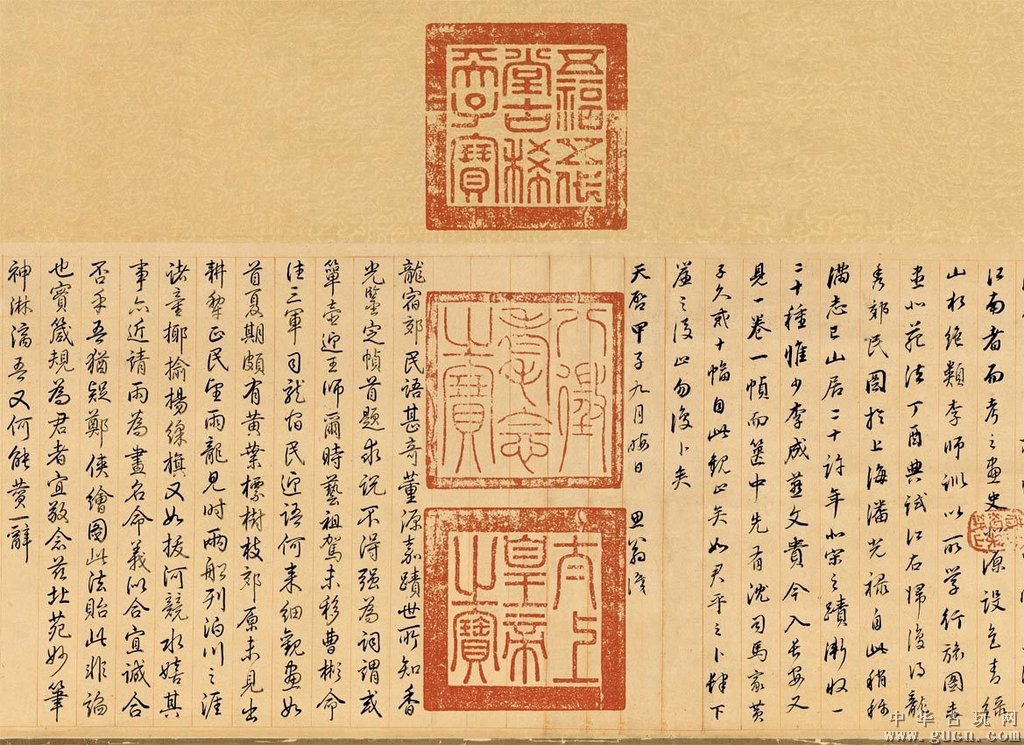 五福五代
堂古稀
天子寶
江南者而考之畫史北源設色青綠
山水絕類李師訓以所學行旅圖未
畫北苑法丁酉典試江右歸復得龍
秀郊民圖於上海潘光祿自此稍稱
滿志已山居二十許年北宋之蹟漸收一
二十種惟少李成燕文貴今入長安又
見一卷一幀而篋中先有沈司馬家黃
子久貳十幅自此觀止矣如君平之卜肆下
簾之後止勿復卜矣
天啓甲子九月晦日 思翁識
八徵
耄念
之寶
太上
皇帝
之寶
龍宿郊民語甚奇董源嘉蹟世所知香
光鑒定幀首題求說不得强為詞謂或
簞壺迎王師爾時藝祖駕未移曹彬命
往三軍司龍宿民迎語何来細觀畫如
首夏期頗有黃葉標樹枝郊原未見出
耕犂正民望雨龍見時兩船列泊川之涯
诸童揶揄楊綵旗又如拔河競水嬉其
事亦近請雨為畫名命義似合宜誠合
否乎吾猶疑鄭俠繪圖此法貽此非論
也實箴規為君者宜敬念兹北苑妙筆
神淋漓吾又何能贊一辭
中华古玩网
www.gucn.com